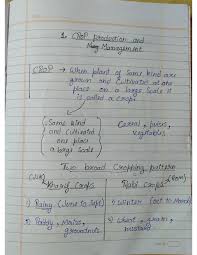 1. CROP Production and
Mang Management
CROP → When plant of Same kind are
grown and Cultivated at one
place on a large Scale it
is called a crops
Same kind
and Cultivated
one place
a large Scale
Cereal, pulses,
vegetables
Two broad Cropping pattern
Kharif Crops
Rabi Crops
1) Rainy (June to Sept)
1) Winter (oct to March)
2) Paddy, Maize,
groundnuts
2) Wheat, gram,
mustard